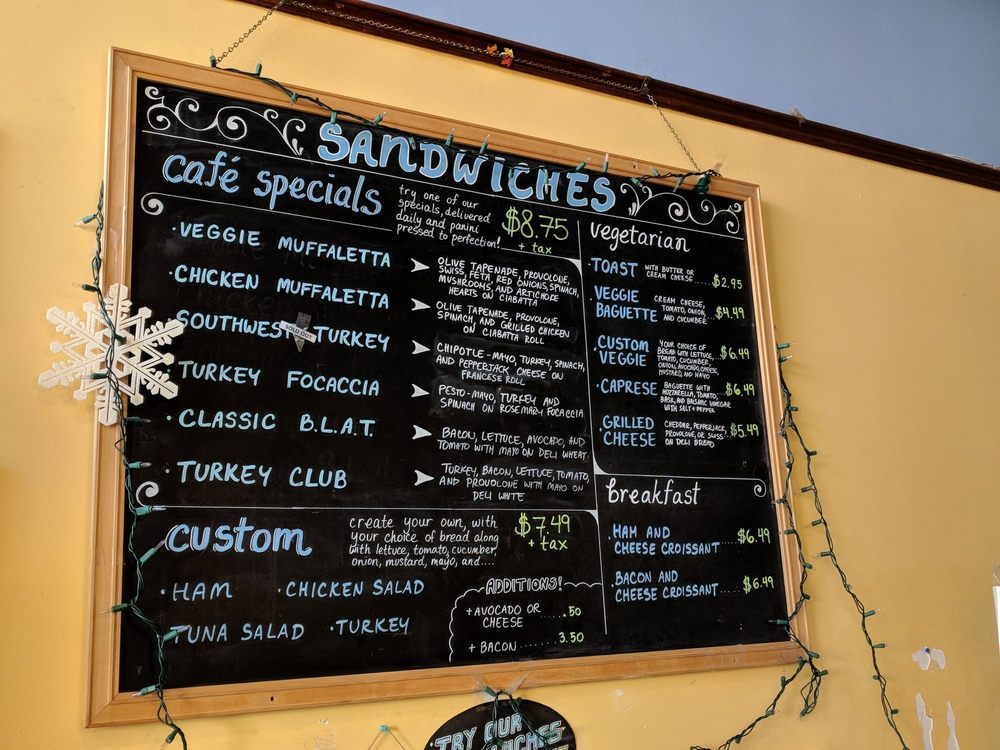 SANDWICHES
café specials
try one of our
specials, delivered
daily and panini
pressed to perfection!
$8.75
+ tax
·VEGGIE MUFFALETTA
OLIVE TAPENADE, PROVOLONE,
SWISS, FETA, RED ONIONS, SPINACH,
MUSHROOMS, AND ARTICHOKE
HEARTS ON CIABATTA
·CHICKEN MUFFALETTA
OLIVE TAPENADE, PROVOLONE,
SPINACH, AND GRILLED CHICKEN
ON CIABATTA ROLL
·SOUTHWEST TURKEY
SOLD OUT
CHIPOTLE-MAYO, TURKEY, SPINACH,
AND PEPPERJACK CHEESE ON
FRANCESE ROLL
·TURKEY FOCACCIA
PESTO-MAYO, TURKEY AND
SPINACH ON ROSEMARY FOCACCIA
·CLASSIC B.L.A.T.
BACON, LETTUCE, AVOCADO, AND
TOMATO WITH MAYO ON DELI WHEAT
·TURKEY CLUB
TURKEY, BACON, LETTUCE, TOMATO,
AND PROVOLONE WITH MAYO ON
DELI WHITE
custom
create your own, with
your choice of bread along
with lettuce, tomato, cucumber,
onion, mustard, mayo, and....
$7.49
+ tax
·HAM ·CHICKEN SALAD
·TUNA SALAD ·TURKEY
ADDITIONS!
+AVOCADO OR
CHEESE .....50
+BACON ........ 3.50
vegetarian
·TOAST WITH BUTTER OR
CREAM CHEESE .....$2.95
VEGGIE
BAGUETTE
CREAM CHEESE,
TOMATO, ONION,
AND CUCUMBER
$4.49
CUSTOM
VEGGIE
YOUR CHOICE OF
BREAD WITH LETTUCE,
TOMATO, CUCUMBER,
ONION, AVOCADO, CHEESE,
MUSTARD, AND MAYO
$6.49
·CAPRESE
BAGUETTE WITH
MOZZARELLA, TOMATO,
BASIL, AND BALSAMIC VINEGAR
WITH SALT + PEPPER
$6.49
·GRILLED
CHEESE
CHEDDAR, PEPPERJACK,
PROVOLONE, OR SWISS
ON DELI BREAD
$5.49
breakfast
·HAM AND
CHEESE CROISSANT ....$6.49
·BACON AND
CHEESE CROISSANT .....$6.49
TRY OUR